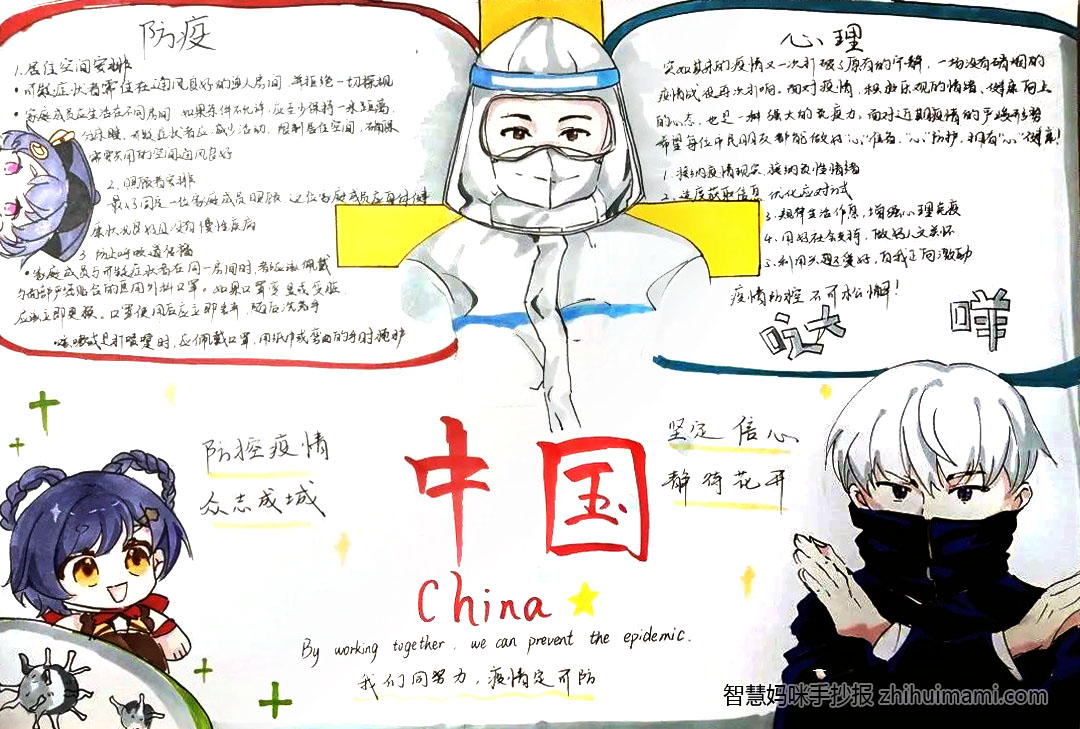 防疫
1.居住空间安排
•可疑症状者需住在通风良好的单人房间，并拒绝一切探视
•家庭成员应生活在不同房间，如果条件不允许，应至少保持一米距离，
分床睡，可疑症状者应减少活动，限制居住空间，确保
需要共用的空间通风良好
2.照顾者安排
最好固定一位家庭成员照顾，这位家庭成员应身体健
康状况良好且没有慢性疾病
3 防止呼吸道传播
•家庭成员与可疑症状者在同一房间时，都应该佩戴
应该立即更换。口罩使用后应立即丢弃，随后洗手
咳嗽或是打喷嚏时，应佩戴口罩，用纸巾或弯曲的手肘掩护
心理
突如其来的疫情又一次打破了原有的宁静，一场没有硝烟的
疫情战役再次打响。面对疫情，积极乐观的情绪，健康向上
的心态，也是一种强大的免疫力，面对近期疫情的严峻形势
希望每位市民朋友都能做好"心"准备，"心"防护，拥有"心"健康！
1.接纳疫情现实，接纳负性情绪
2.适度获取信息 优化应对方式
3.规律生活作息，增强心理免疫
4.用好社会支持，做好人文关怀
5.利用兴趣爱好，自我正向激励
疫情防控 不可松懈！
哒大
咩
防控疫情
众志成城
中国
坚定信心
静待花开
China
By working together, we can prevent the epidemic.
我们同努力，疫情定可防
智慧妈咪手抄报 zhihuimami.com